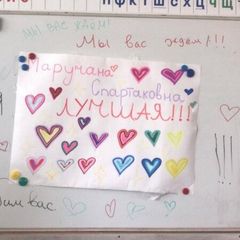 ПФКТШСХЦЧЩ
МЫ ВАС ЖДЁМ!
Мы вас ждём!!!
Маручана
Спартаковна
ЛУЧШАЯ!!!
вас.
!!!